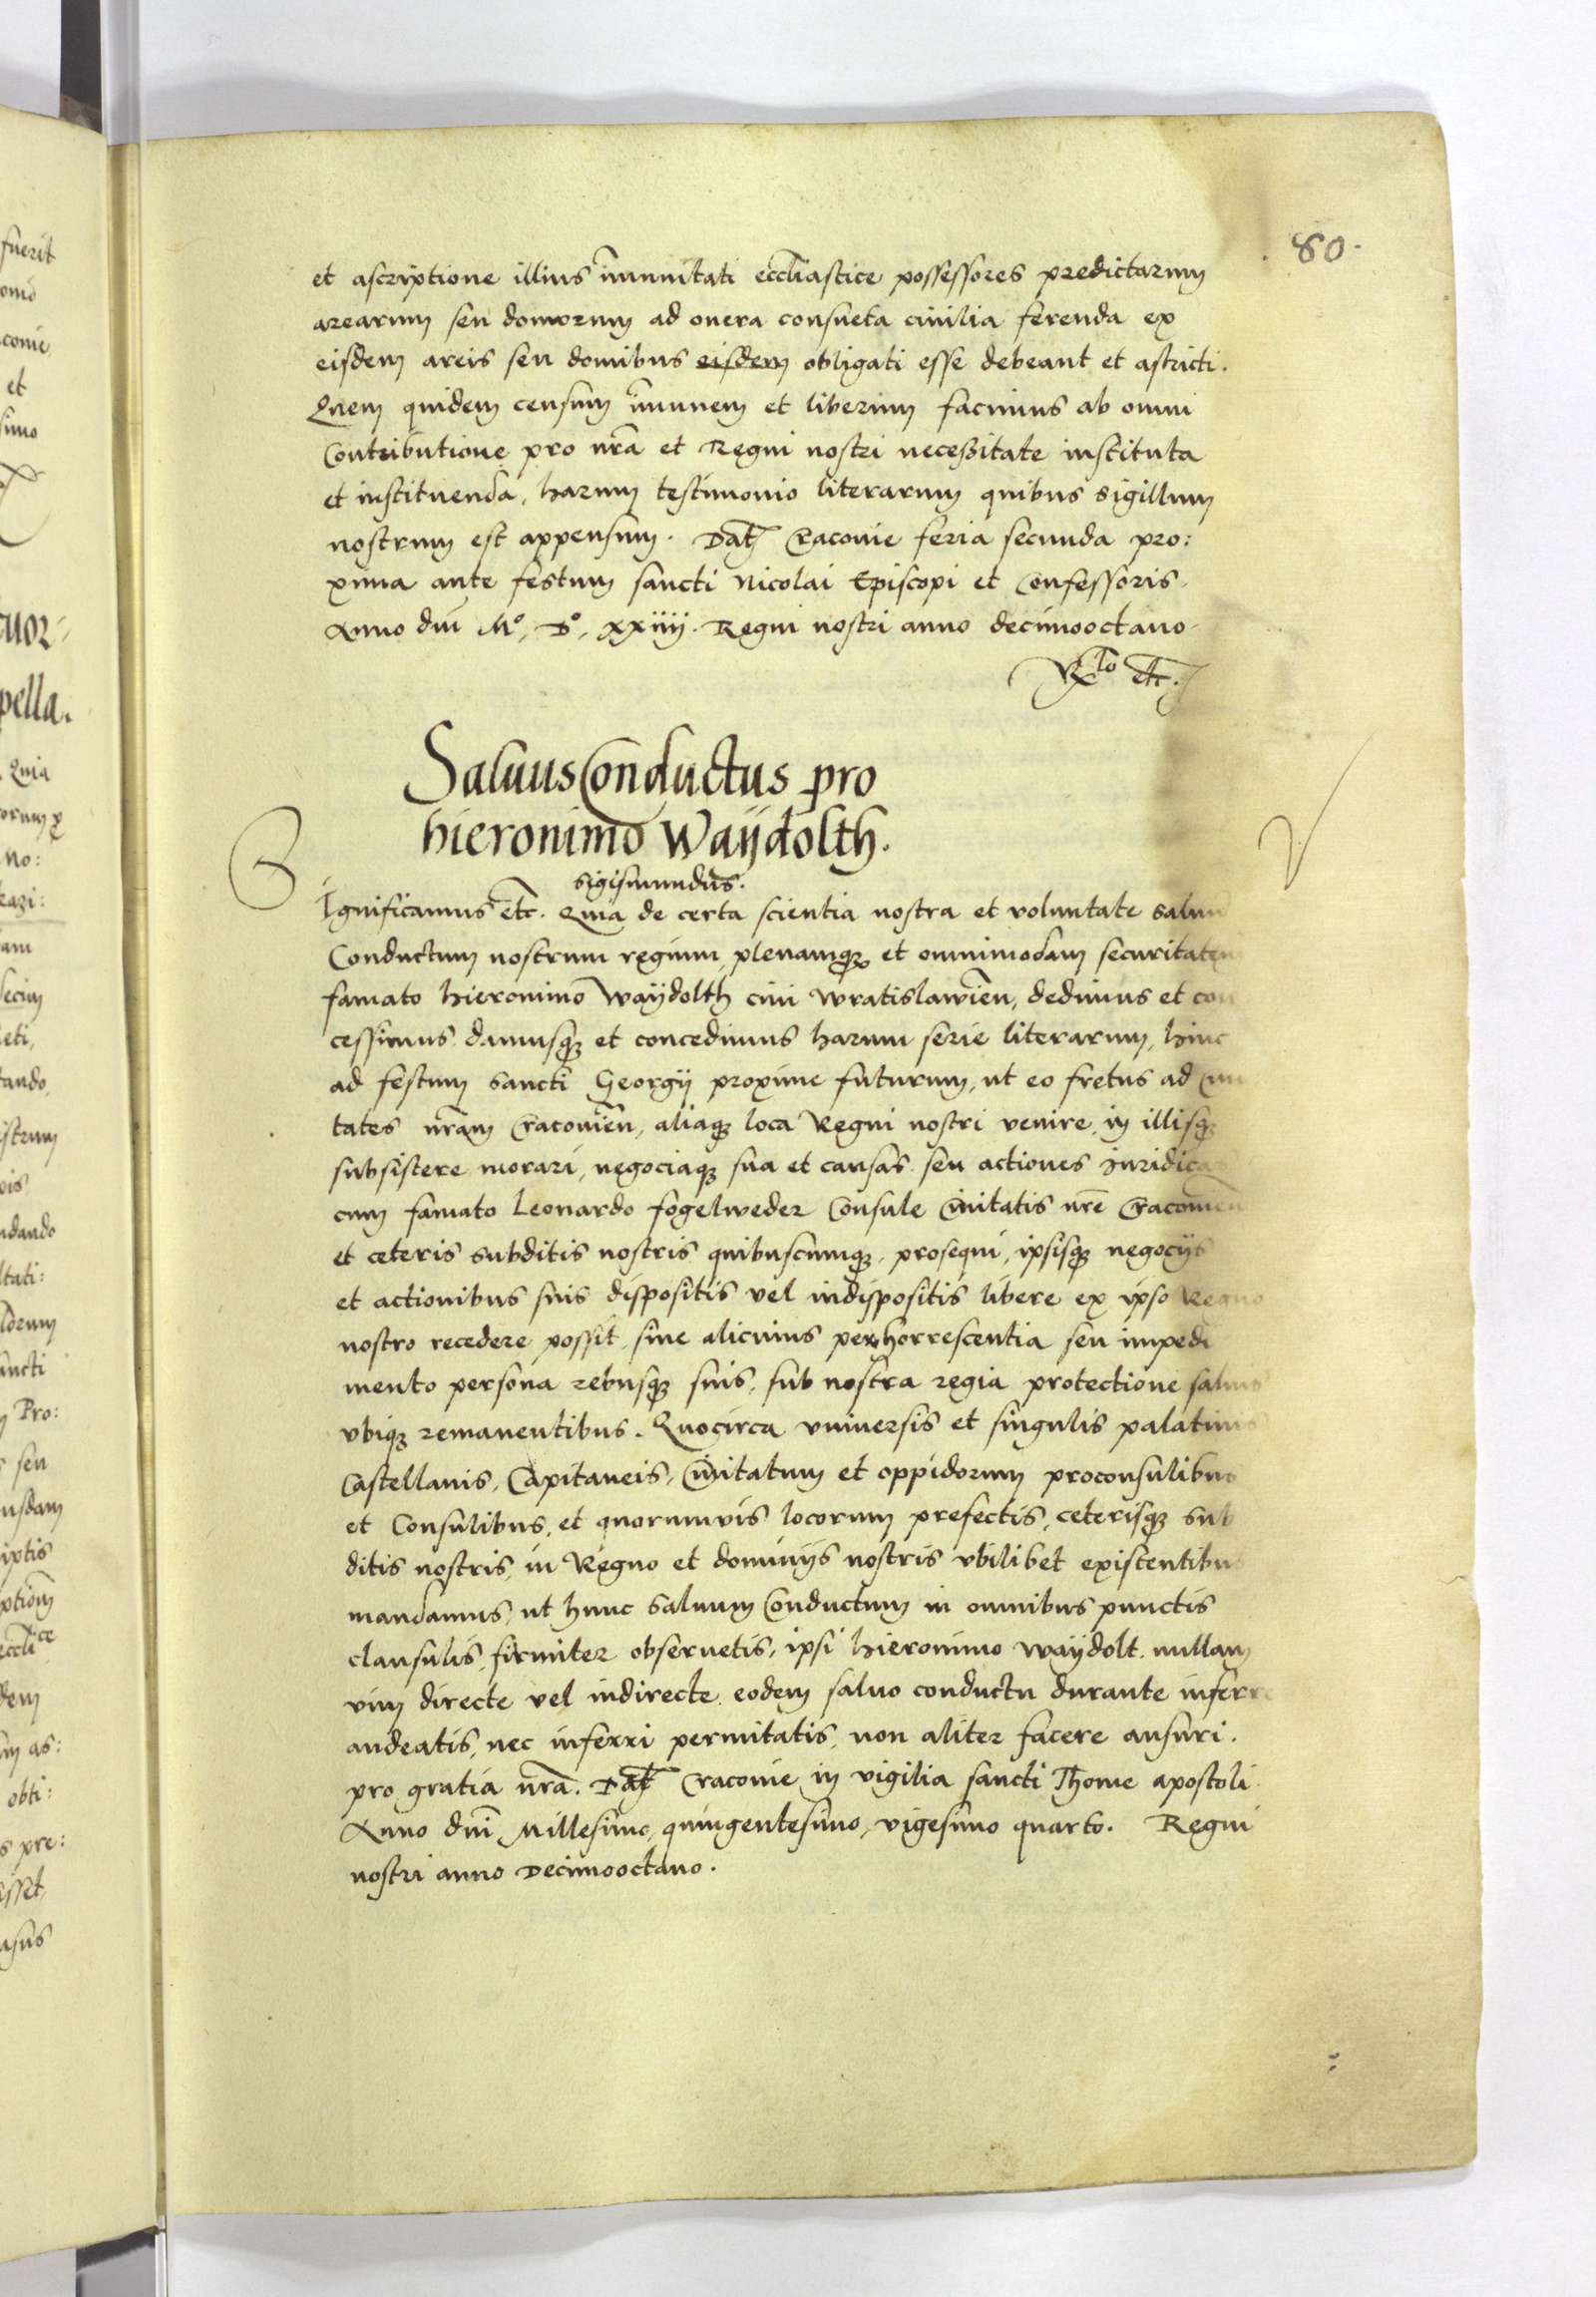 80.
et ascriptione illius im̄unitati eccl̄iastice possessores predictarum
arearum seu domorum ad onera consueta ciuilia ferenda ex
eisdem areis seu domibus eisdem obligati esse debeant et astricti.
Quem quidem censum im̄unem et liberum facimus ab omni
Contributione pro nr̄a et Regni nostri necessitate instituta
et instituenda, harum testimonio literarum quibus sigillum
nostrum est appensum. Dat Cracouie feria secunda pro:
xima ante festum sancti Nicolai Episcopi et Confessoris.
Anno dni M°, D°, xxiiij. Regni nostri anno decimooctauo
etc.
Saluus Conductus pro
hieronimo Waÿdolth.
Sigismundus.
Ignificamus etc. Quia de certa scientia nostra et voluntate saluu
Conductum nostrum regium, plenamq; et omnimodam securitatem
famato hieronimo Waÿdolth ciui Wratislawien̄, dedimus et con
cessimus damusq; et concedimus harum serie literarum, hinc
ad festum Sancti Georgij proxime futurum, ut eo fretus ad Ciui
tates nr̄am Cracouien̄, aliaq; loca Regni nostri venire, in illisq;
subsistere morari, negociaq; sua et causas seu actiones Iuridicas
cum famato Leonardo fogelweder Consule Ciuitatis nr̄e Cracouien
et ceteris subditis nostris quibuscumq; prosequi, ipsisq; negocijs
et actionibus suis dispositis vel indispositis libere ex ipso Regno
nostro recedere possit, sine alicuius perhorrescentia seu impedi
mento persona rebusq; suis, sub nostra regia protectione saluis
vbiq; remanentibus. Quocirca vniuersis et singulis palatinis
Castellanis, Capitaneis, Ciuitatum et oppidorum proconsulibus
et Consulibus, et quorumuis locorum prefectis, ceterisq; sub
ditis nostris, in Regno et dominijs nostris vbilibet existentibus
mandamus, ut hunc saluum Conductum in omnibus punctis
clausulis, firmiter obseruetis, ipsi hieronimo Waÿdolt. nullam
vim directe vel indirecte eodem saluo conductu durante inferre
audeatis, nec inferri permitatis, non aliter facere ausuri.
pro gratia nr̄a. Dat Cracouie in vigilia sancti Thome apostoli
Anno dn̄i Millesimo, quingentesimo, vigesimo quarto. Regni
nostri anno Decimooctauo.